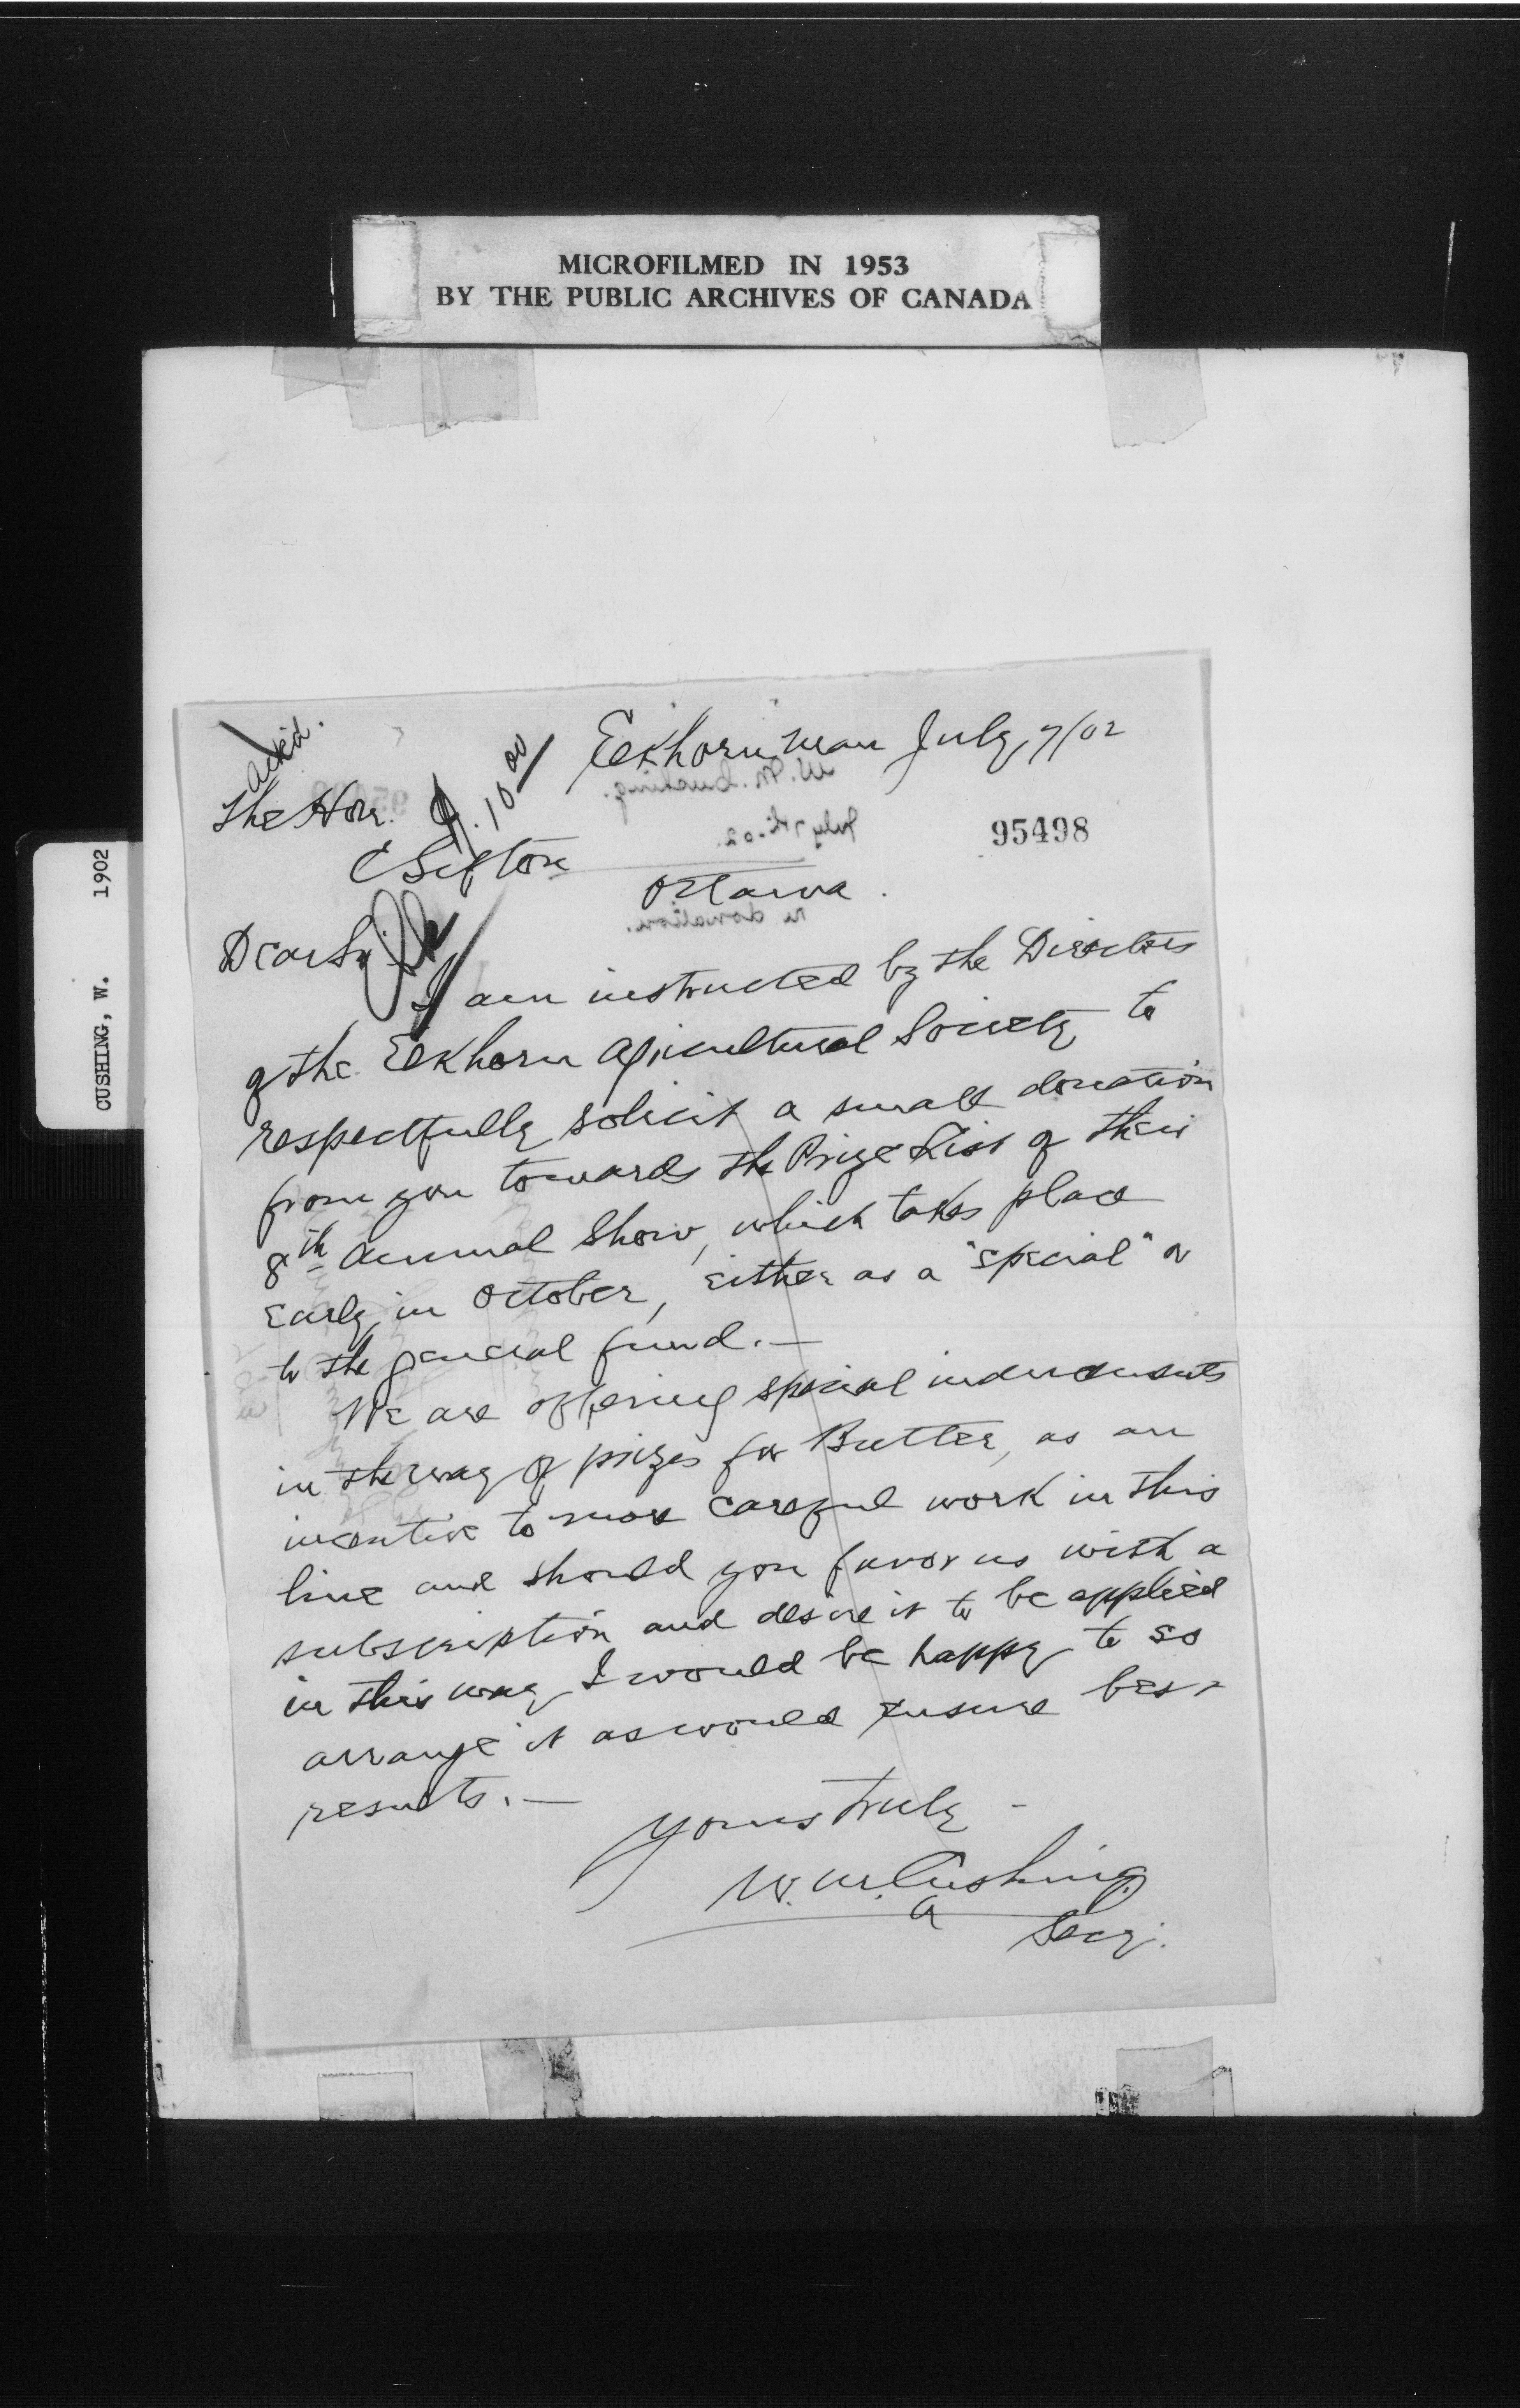 MICROFILMED IN 1953
BY THE PUBLIC ARCHIVES OF CANADA
CUSHING, W. 1902
Ack'd.
$10.00
Elkhorn Man July 7/02
The Hon.
C Sifton
95498
Ottawa.
Dear Sir
I am instructed by the Directors
of the Elkhorn Agricultural Society to
respectfully solicit a small donation
from you towards the Prize List of their
8th annual Show, which takes place
Early in October, either as a "special" or
to the general fund.—
We are offering special inducements
in the way of prizes for Butter, as an
incentive to more careful work in this
line and should you favor us with a
subscription and desire it to be applied
in this way I would be happy to so
arrange it as would ensure best
results.—
Yours truly
W. M. Cushing
Secy.
W. M. Cushing.
July 7th-02.
re donation.